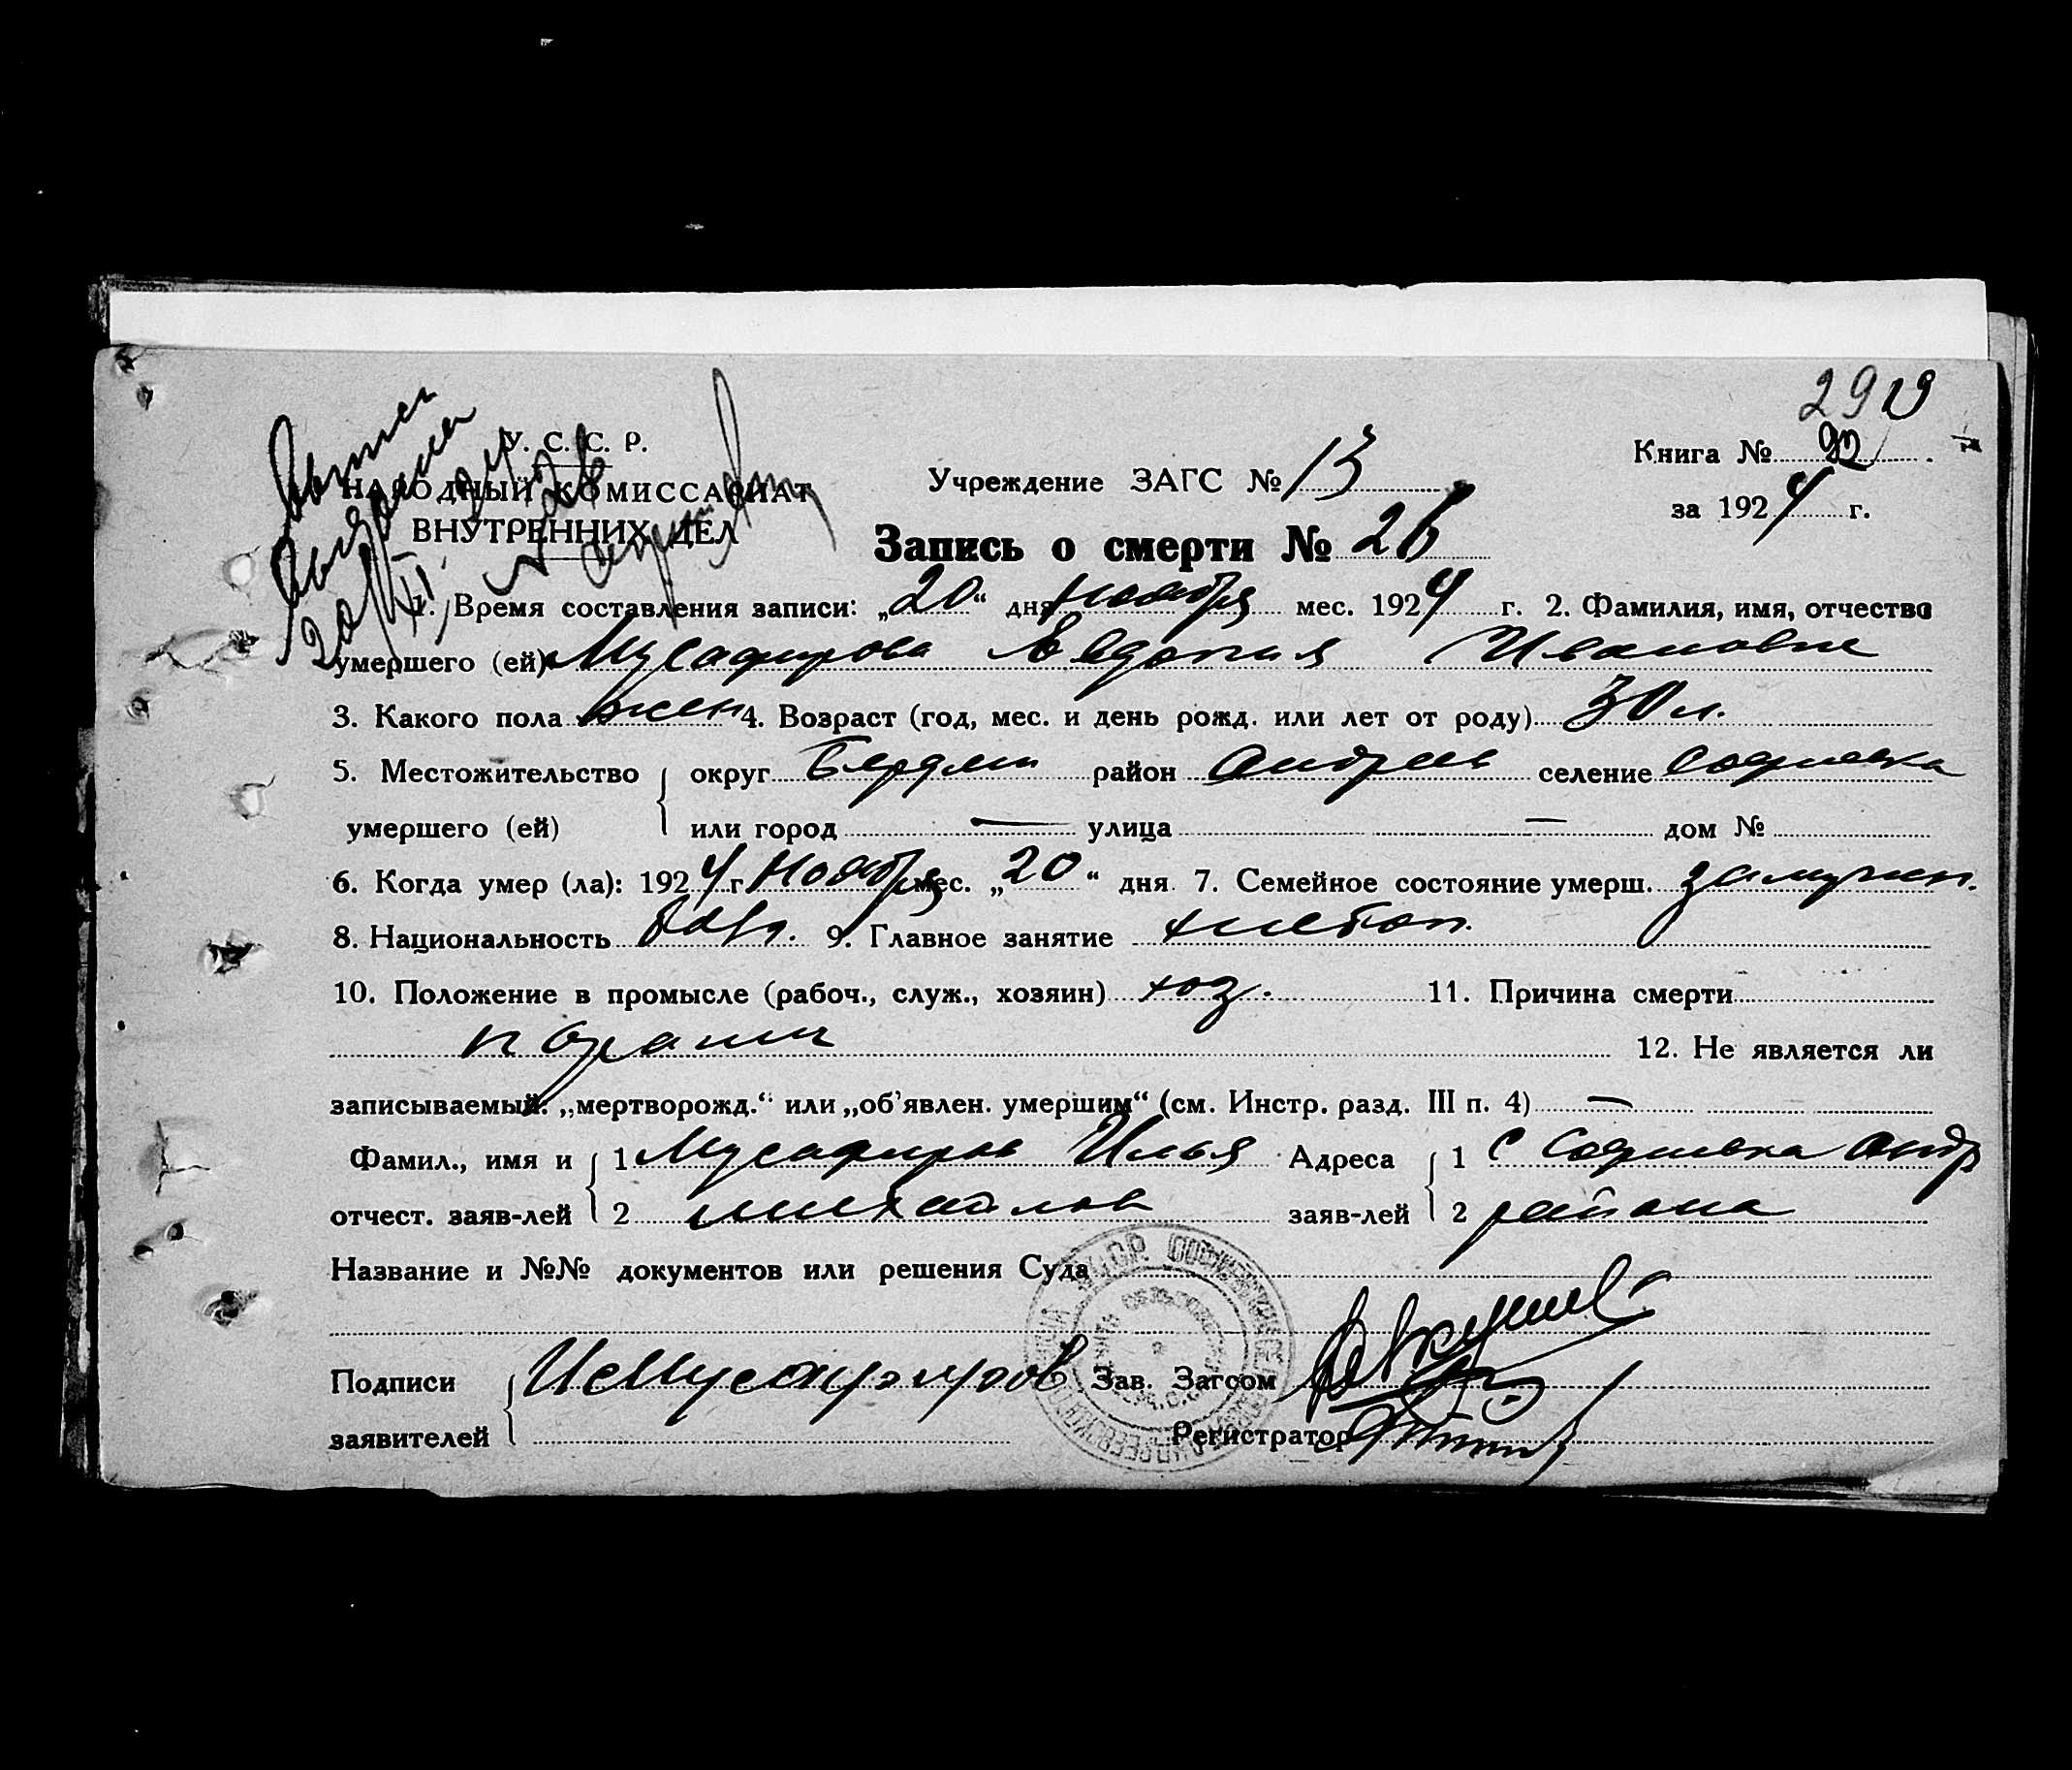 29
У. С. С. Р.
НАРОДНЫЙ КОМИССАРИАТ
ВНУТРЕННИХ ДЕЛ
20/XI
Учреждение ЗАГС № 13
Книга №
за 1924 г.
Запись о смерти № 26
1. Время составления записи: „20“ дня ноября мес. 1924 г. 2. Фамилия, имя, отчество
умершего (ей) Мусафирова Евдокия Ивановне
3. Какого пола жен 4. Возраст (год, мес. и день рожд. или лет от роду) 30 л.
5. Местожительство округ Бердян район Андреев селение Софиевка
умершего (ей) или город — улица — дом №
6. Когда умер (ла): 1924 г. Ноября мес. „20“ дня 7. Семейное состояние умерш. замужн.
8. Национальность болг. 9. Главное занятие хлебоп.
10. Положение в промысле (рабоч., служ., хозяин) хоз. 11. Причина смерти
12. Не является ли
записываемый: „мертворожд.“ или „об'явлен. умершим“ (см. Инстр. разд. III п. 4) —
Фамил., имя и 1 Мусафиров Илья Адреса 1 с Софиевка Андр
отчест. заяв-лей 2 Михайлов заяв-лей 2 района
Название и №№ документов или решения Суда
Подписи Мусафиров Зав. Загсом
заявителей Регистратор